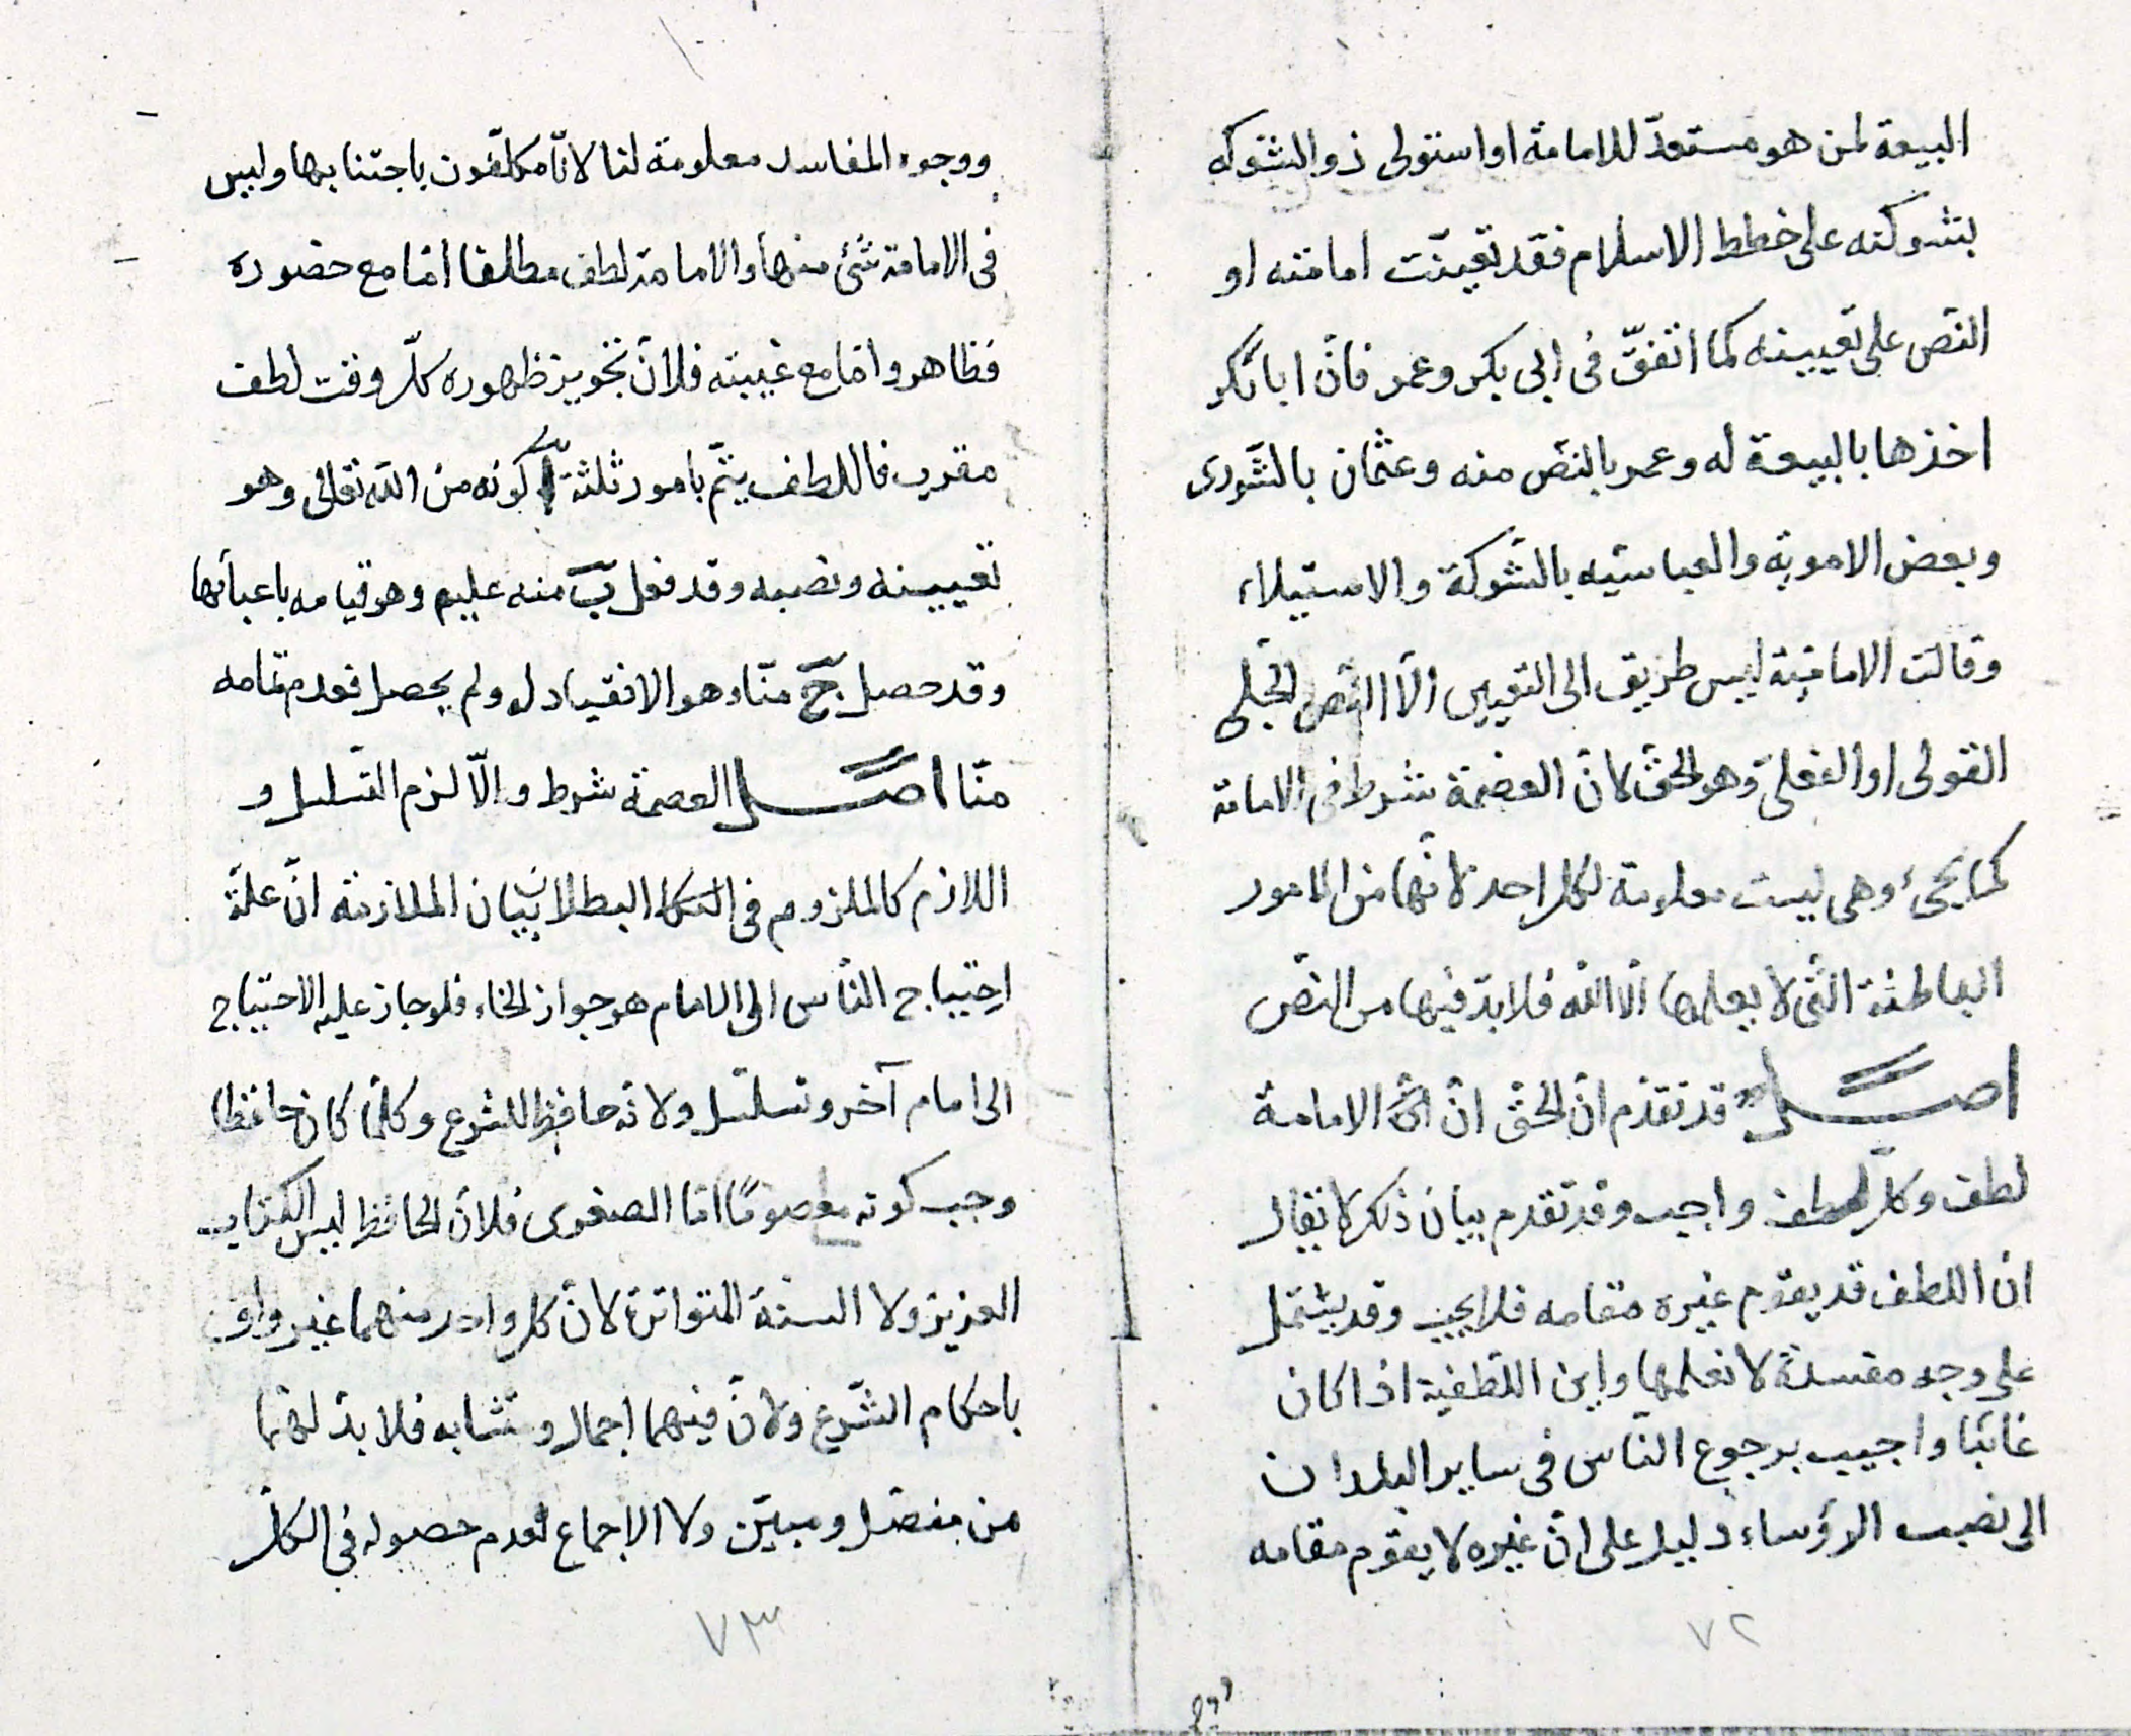 البيعة لمن هو مستعدّ للامامة او استولى ذو الشوكه
بشوكته على خطط الاسلام فقد تعينت امامته او
النص على تعيينه كما اتفق فى ابى بكر وعمر فانّ ابابكر
اخذها بالبيعة له وعمر بالنص منه وعثمان بالشورى
وبعض الاموية والعباسيه بالشوكة والاستيلاء
وقالت الامامية ليس طريق الى التعيين الّا النص الجلى
القولى او الفعلى وهو الحق لانّ العصمة شرط فى الامامة
كما يجئ وهى ليست معلومة لكل احد لانّها من الامور
الباطنة التى لا يعلمها الّا اللّه فلا بدّ فيها من النصّ
اصل قد تقدّم انّ الحقّ انّ الامامة
لطف وكلّ لطف واجب وقد تقدم بيان ذلك لا يقال
ان اللطف قد يقوم غيره مقامه فلا يجب وقد يشتمل
على وجه مفسدة لا نعلمها واين اللّطفية اذا كان
غائبًا واجيب برجوع النّاس فى ساير البلدان
الى نصب الرؤساء دليل على انّ غيره لا يقوم مقامه
٧٢
ووجوه المفاسد معلومة لنا لانّا مكلّفون باجتنابها وليس
فى الامامة شئ منها والامامة لطف مطلقا امّا مع حضوره
فظاهر وامّا مع غيبته فلانّ تجويز ظهوره كلّ وقت لطف
مقرب فاللطف يتمّ بامور ثلثة آ كونه من اللّه تعالى وهو
تعيينه ونصبه وقد فعل ب منه عليم وهو قيامه باعبائها
وقد حصل ج منّا وهو الانقياد له ولم يحصل فعدم تمامه
منّا اصل العصمة شرط والّا لزم التسلسل و
اللازم كالملزوم فى البطلان بيان الملازمة انّ علّة
احتياج النّاس الى الامام هو جواز الخطاء فلو جاز عليه الاحتياج
الى امام آخر وتسلسل ولانّه حافظ للشرع وكلّما كان حافظا
وجب كونه معصومًا امّا الصغرى فلانّ الحافظ ليس الكتاب
العزيز ولا السنّة المتواترة لانّ كل واحد منهما غير واف
باحكام الشّرع ولانّ فيهما اجمال وتشابه فلا بدّ لهما
من مفصّل ومبيّن ولا الاجماع لعدم حصوله فى الكلّ
٧٣